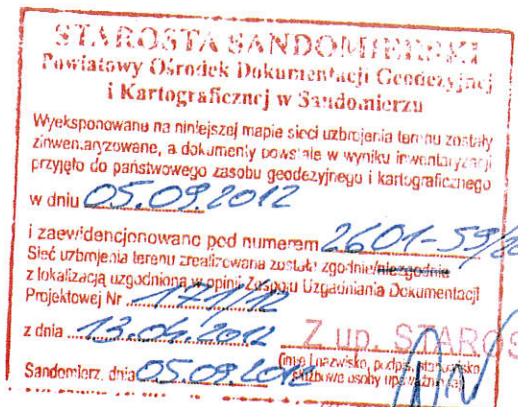 STAROSTA SANDOMIERSKI
Powiatowy Ośrodek Dokumentacji Geodezyjnej
i Kartograficznej w Sandomierzu
Wyeksponowane na niniejszej mapie sieci uzbrojenia terenu zostały
zinwentaryzowane, a dokumenty powstałe w wyniku inwentaryzacji
przyjęto do państwowego zasobu geodezyjnego i kartograficznego
w dniu 05.09.2012
i zaewidencjonowano pod numerem 2601-59/20
Sieć uzbrojenia terenu zrealizowana została zgodnie/niezgodnie
z lokalizacją uzgodnioną w opinii Zespołu Uzgadniania Dokumentacji
Projektowej Nr 171/12
z dnia 13.04.2012 Z up. STAROS
(imię i nazwisko, podpis, stanowisko
Sandomierz, dnia 05.09.2012 służbowe osoby upoważnionej)